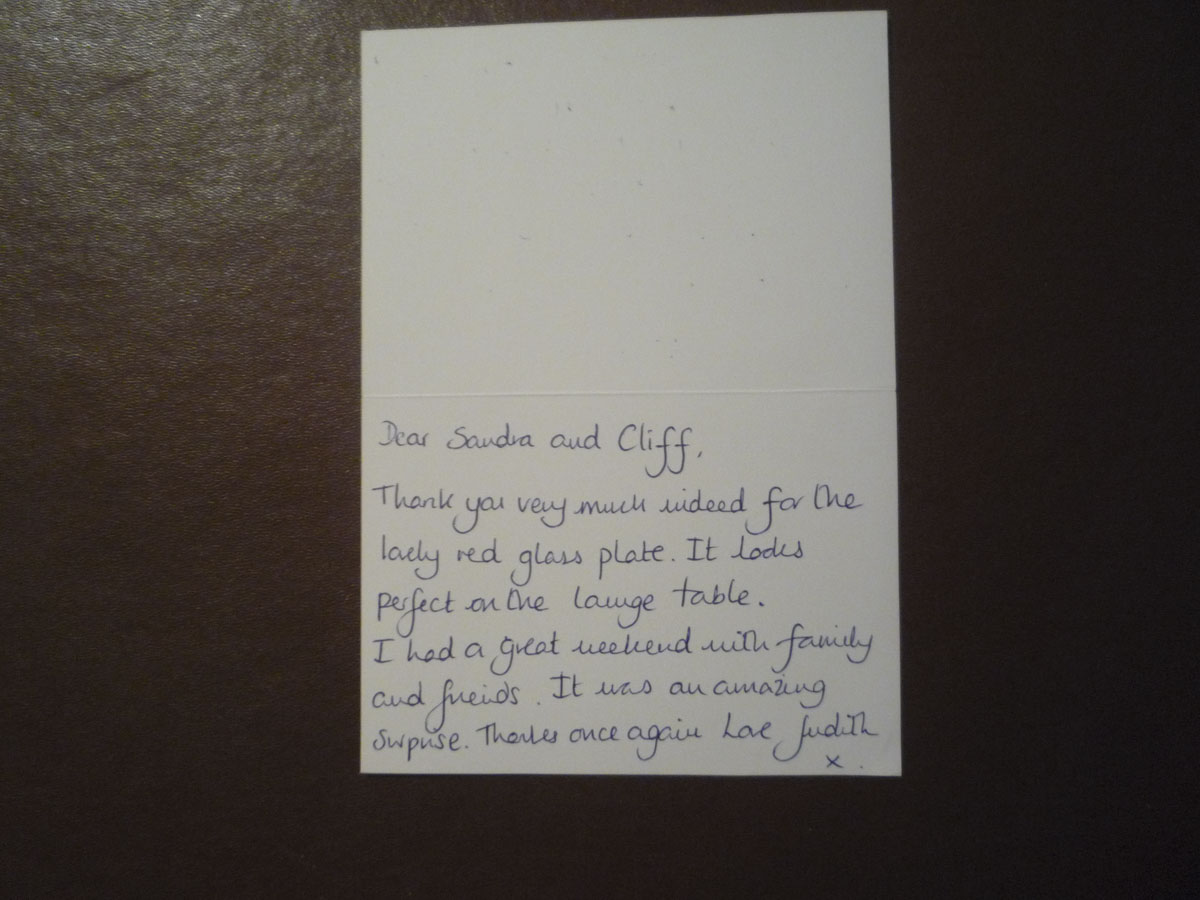 Dear Sandra and Cliff,
Thank you very much indeed for the
lovely red glass plate. It looks
perfect on the lounge table.
I had a great weekend with family
and freinds. It was an amazing
surprise. Thanks once again Love Judith
x.